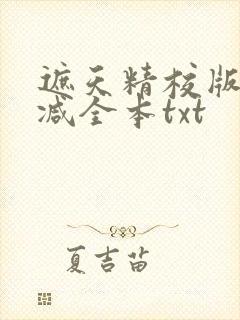 遮天精校版
减全本txt
夏吉苗